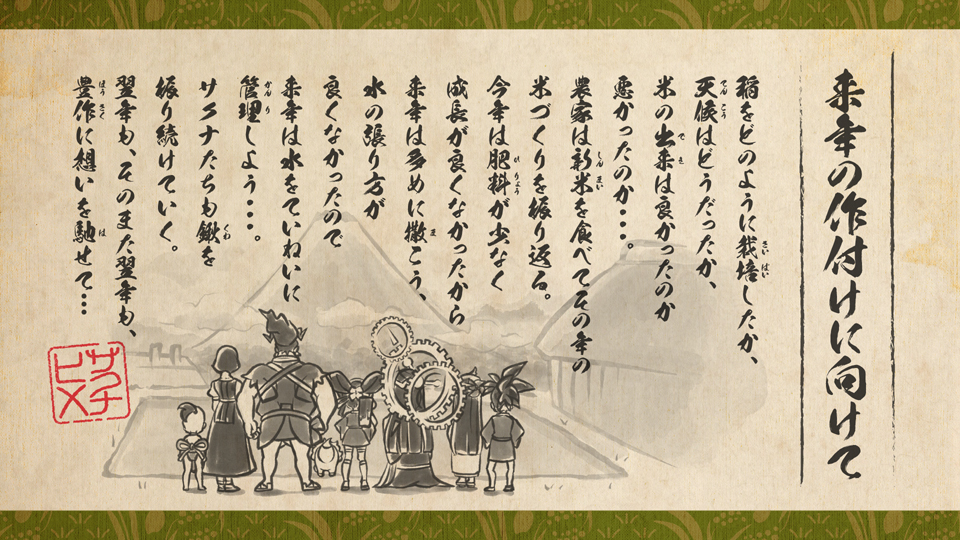 来年の作付けに向けて
稲をどのように栽培したか、
天候はどうだったか、
米の出来は良かったのか
悪かったのか・・・。
農家は新米を食べてその年の
米づくりを振り返る。
今年は肥料が少なく
成長が良くなかったから
来年は多めに撒こう、
水の張り方が
良くなかったので
来年は水をていねいに
管理しよう・・・。
サクナたちも鍬を
振り続けていく。
翌年も、そのまた翌年も、
豊作に想いを馳せて・・・
サクナ
ヒメ